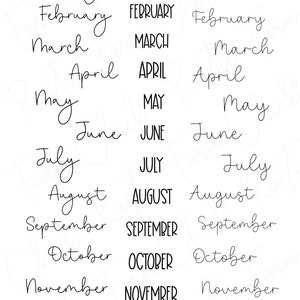 February FEBRUARY February
March MARCH March
April APRIL April
May MAY May
June JUNE June
July JULY July
August AUGUST August
September SEPTEMBER September
October OCTOBER October
November NOVEMBER November